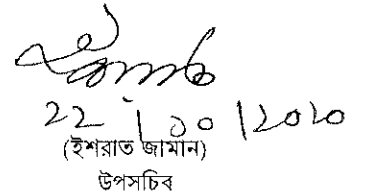 22/10/2020
(ইশরাত জামান)
উপসচিব